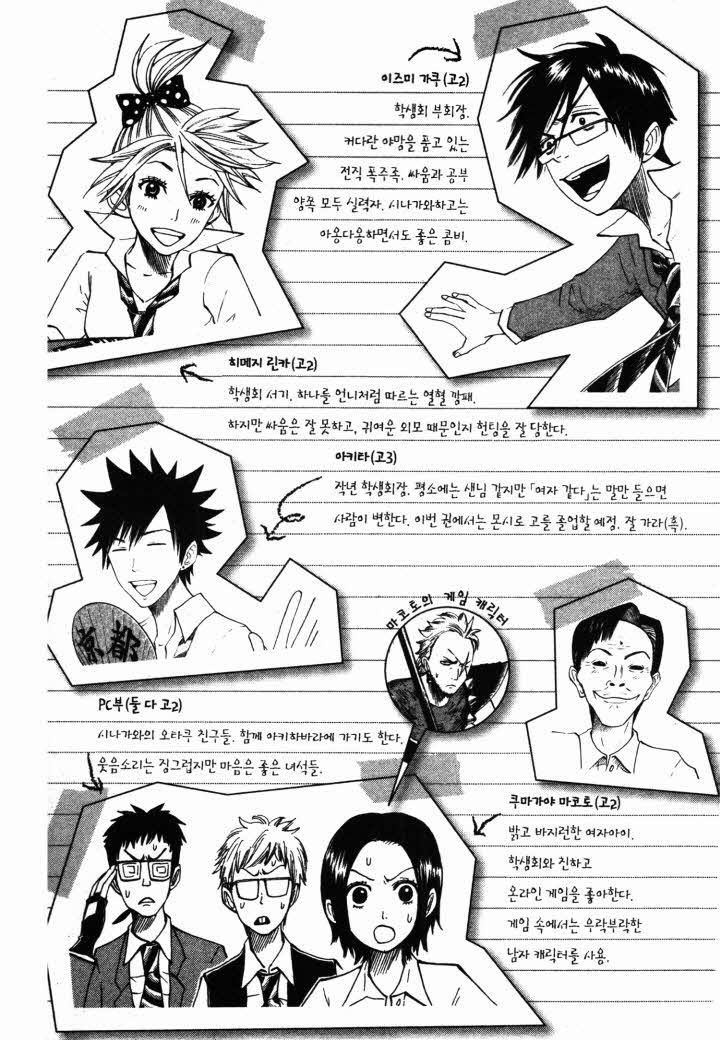 이즈미 가쿠(고2)
학생회 부회장.
커다란 야망을 품고 있는
전직 폭주족. 싸움과 공부
양쪽 모두 실력자. 시나가와하고는
아옹다옹하면서도 좋은 콤비.
히메지 린카(고2)
학생회 서기. 하나를 언니처럼 따르는 열혈 깡패.
하지만 싸움은 잘 못하고, 귀여운 외모 때문인지 헌팅을 잘 당한다.
아키타(고3)
작년 학생회장. 평소에는 샌님 같지만 「여자 같다」는 말만 들으면
사람이 변한다. 이번 권에서는 몬시로 고를 졸업할 예정. 잘 가라(흑).
京都
마코토의 게임 캐릭터
PC부(둘 다 고2)
시나가와의 오타쿠 친구들. 함께 아키하바라에 가기도 한다.
웃음소리는 징그럽지만 마음은 좋은 녀석들.
쿠마가야 마코토(고2)
밝고 바지런한 여자아이.
학생회와 친하고
온라인 게임을 좋아한다.
게임 속에서는 우락부락한
남자 캐릭터를 사용.